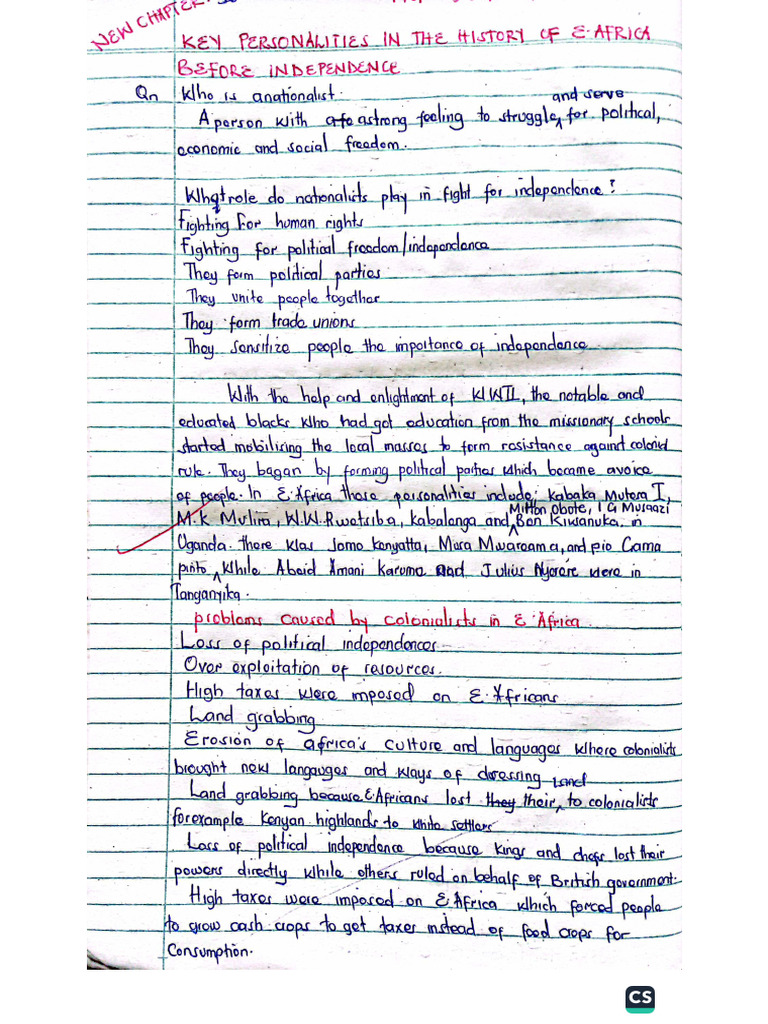 NEW CHAPTER
KEY PERSONALITIES IN THE HISTORY OF E.AFRICA
BEFORE INDEPENDENCE
Qn Who is anationalist.
and serve
A person with astrong feeling to struggle for political,
economic and social freedom.
What role do nationalists play in fight for independence?
Fighting For human rights
Fighting for political freedom/independence
They form political parties
They unite people together
They form trade unions
They sensitize people the importance of independence
With the help and enlightment of WWII, the notable and
educated blacks who had got education from the missionary schools
started mobilising the local masses to form resistance against colonial
rule. They began by forming political parties which became avoice
of people. In E.Africa these personalities include; Kabaka Mutesa I,
Milton Obote, I G Musaazi
M.K Mulira, W.W.Rwetsiba, Kabalega and Ben Kiwanuka, in
Uganda. there was Jomo Kenyatta, and pio Gama
pinto while Abeid Amani Karume and Julius Nyerere were in
Tanganyika.
problems caused by colonialists in E.Africa
Loss of political independences
Over exploitation of resources.
High taxes were imposed on E.Africans
Land grabbing
Erosion of africa's culture and languages where colonialists
brought new langauges and ways of deressing
Land
Land grabbing because E.Africans lost they their to colonialists
forexample Kenyan highlands to white settlers
Loss of political independence because kings and chefs lost their
powers directly while others ruled on behalf of British government.
High taxes were imposed on E.Africa which forced people
to grow cash crops to get taxes instead of food crops for
Consumption.
CS